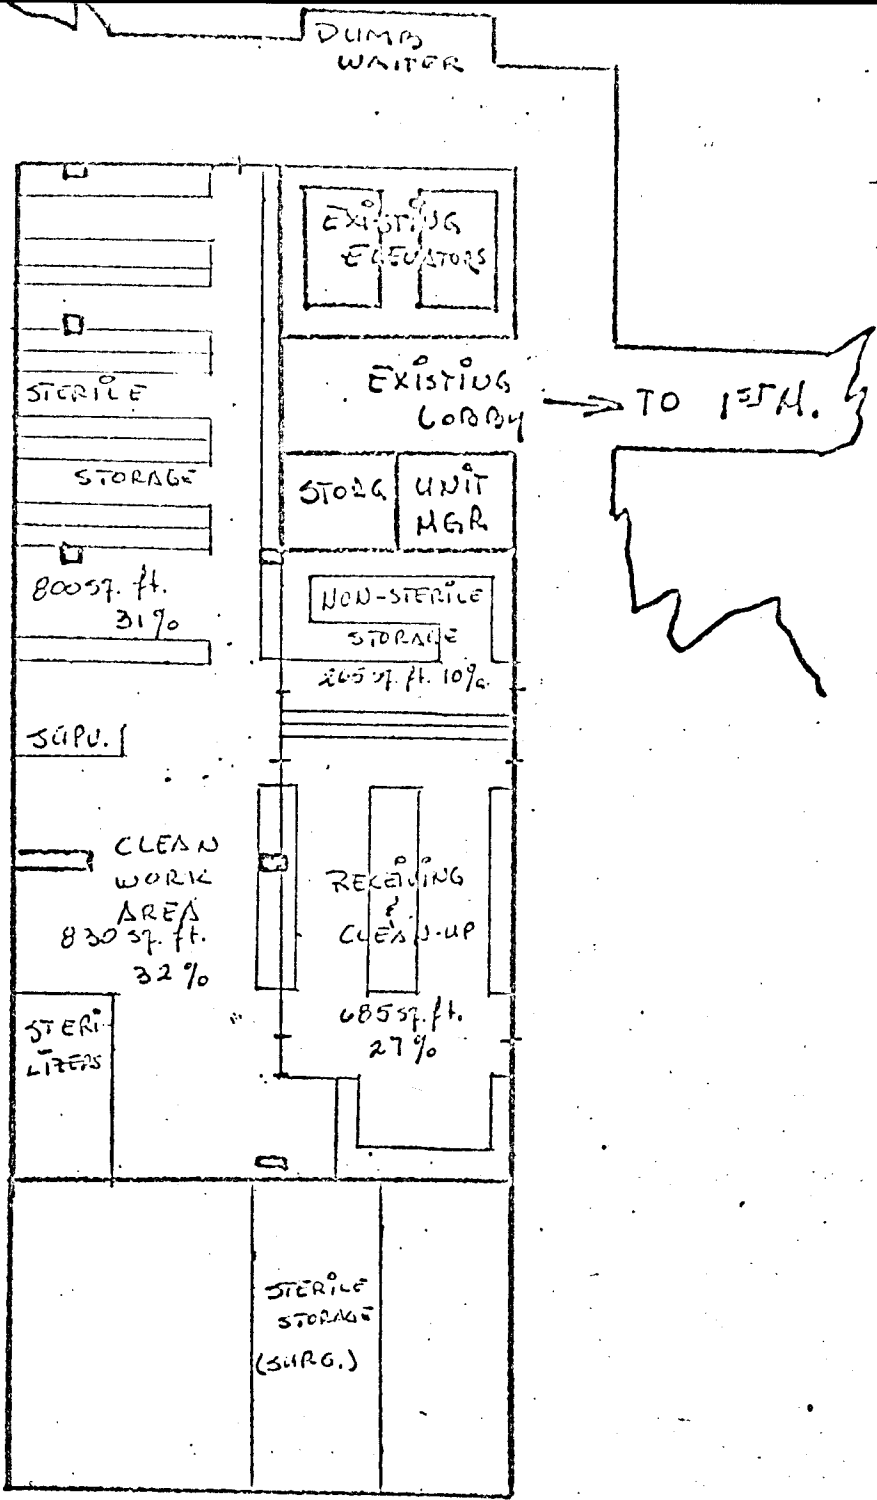 DUMB
WAITER
EXISTING
ELEVATORS
EXISTING
LOBBY
TO 1ST M.
STERILE
STORAGE
800 sq. ft.
31%
STORG
UNIT
MGR
NON-STERILE
STORAGE
265 sq. ft. 10%
SUPV.
CLEAN
WORK
AREA
830 sq. ft.
32%
RECEIVING
&
CLEAN-UP
685 sq. ft.
27%
STERI-
LIZERS
STERILE
STORAGE
(SURG.)